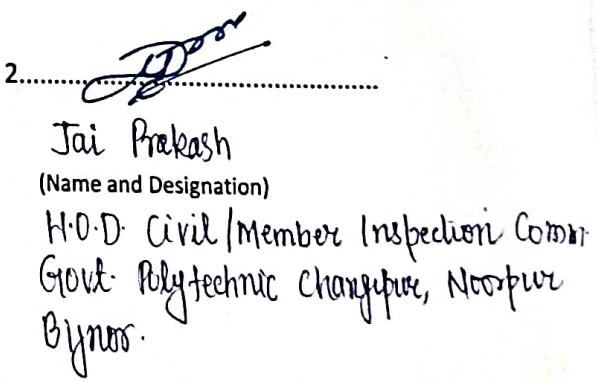 2..........................................................
Jai Prakash
(Name and Designation)
H.O.D. Civil/Member Inspection Comm
Govt. Polytechnic Changipur, Noorpur
Bijnor.